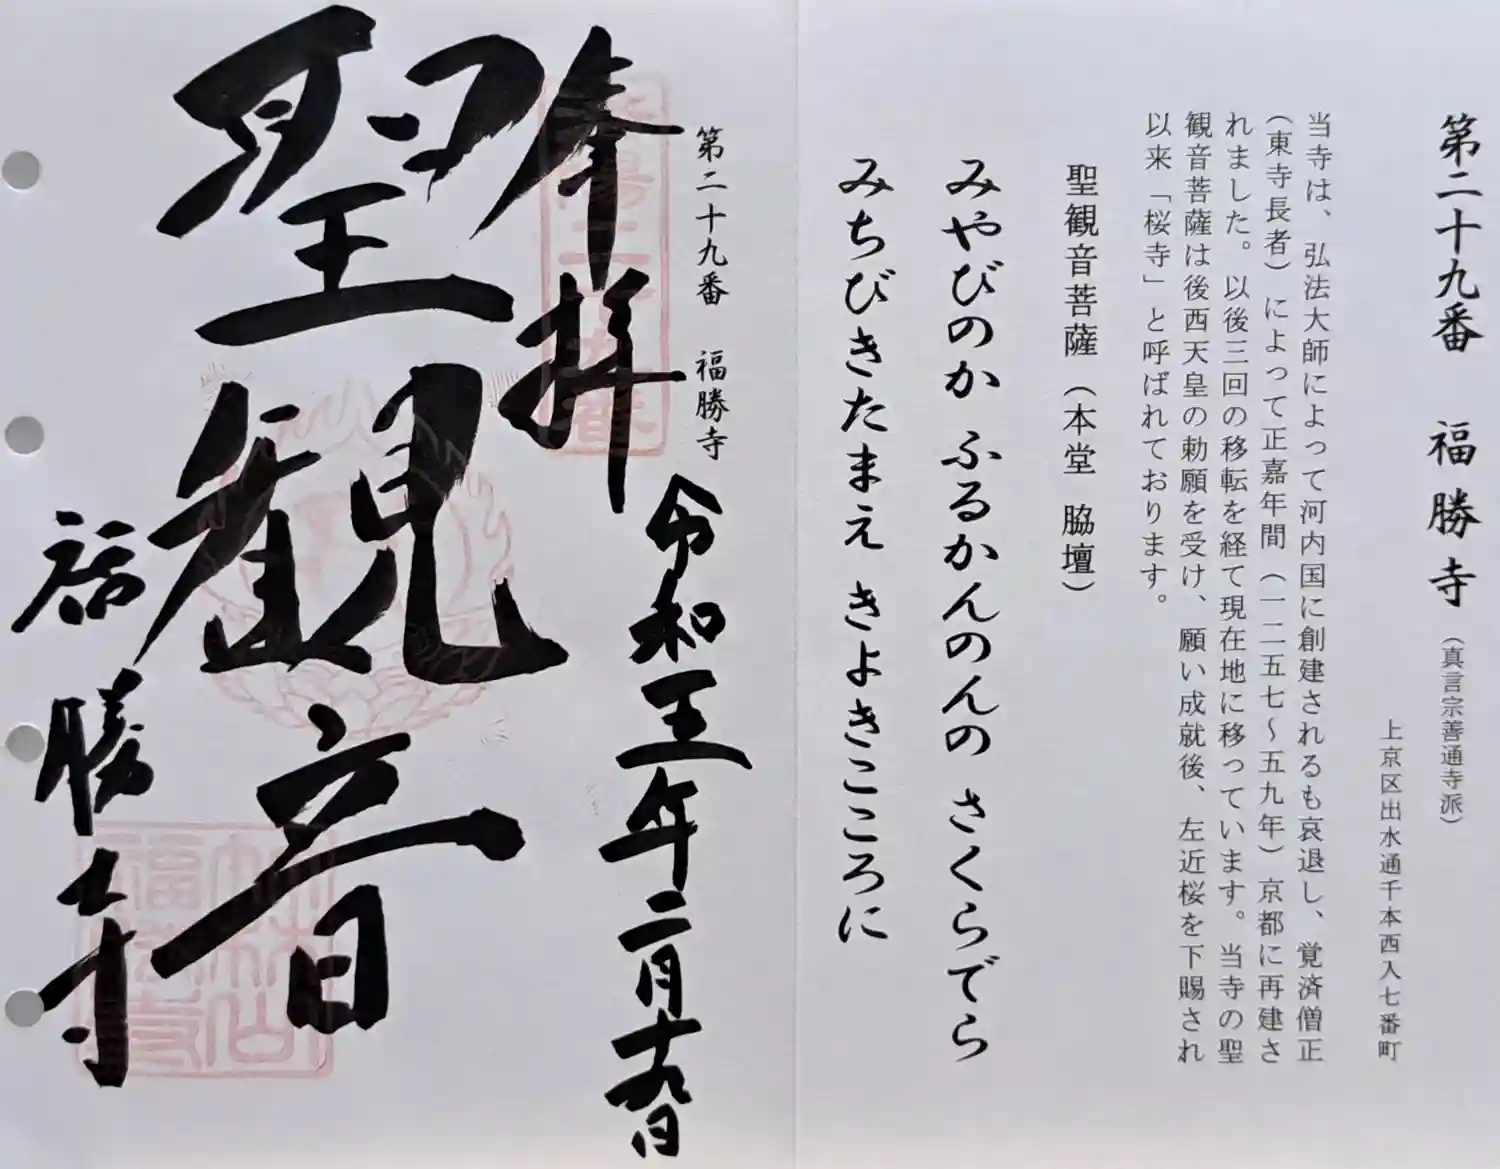 第二十九番 福勝寺（真言宗善通寺派）
上京区出水通千本西入七番町
当寺は、弘法大師によって河内国に創建されるも哀退し、覚済僧正
（東寺長者）によって正嘉年間（一二五七〜五九年）京都に再建さ
れました。以後三回の移転を経て現在地に移っています。当寺の聖
観音菩薩は後西天皇の勅願を受け、願い成就後、左近桜を下賜され
以来「桜寺」と呼ばれております。
聖観音菩薩（本堂 脇壇）
みやびのか ふるかんのんの さくらでら
みちびきたまえ きよきこころに
第二十九番 福勝寺
奉拝
令和三年二月十九日
聖観音
福勝寺
福勝寺